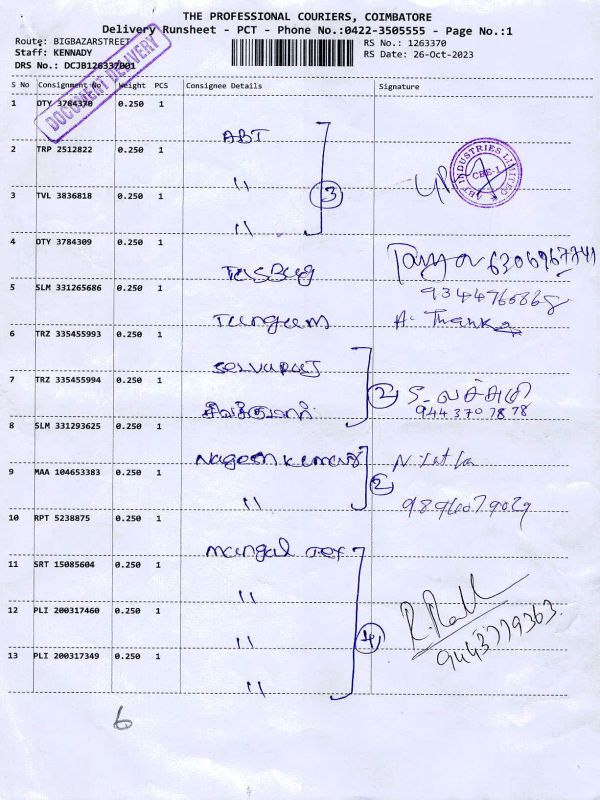 THE PROFESSIONAL COURIERS, COIMBATORE
Delivery Runsheet - PCT - Phone No.:0422-3505555 - Page No.:1
Route: BIGBAZARSTREET
RS No.: 1263370
Staff: KENNADY
RS Date: 26-Oct-2023
DRS No.: DCJB126337001
DOCUMENT DELIVERY
S No Consignment No Weight PCS Consignee Details Signature
1 OTY 3784370 0.250 1
ABT
2 TRP 2512822 0.250 1
"
ABT INDUSTRIES LIMITED
CBE-1
3 TVL 3836818 0.250 1
3
"
4 OTY 3784309 0.250 1
6306967741
5 SLM 331265686 0.250 1
9344760868
A. Thanka
6 TRZ 335455993 0.250 1
Selvaraj
7 TRZ 335455994 0.250 1
2
944 370 78 78
8 SLM 331293625 0.250 1
Nageshkumar
9 MAA 104653383 0.250 1
2
"
10 RPT 5238875 0.250 1
mangal Tex
11 SRT 15085604 0.250 1
"
12 PLI 200317460 0.250 1
"
4
9443779363
13 PLI 200317349 0.250 1
"
6